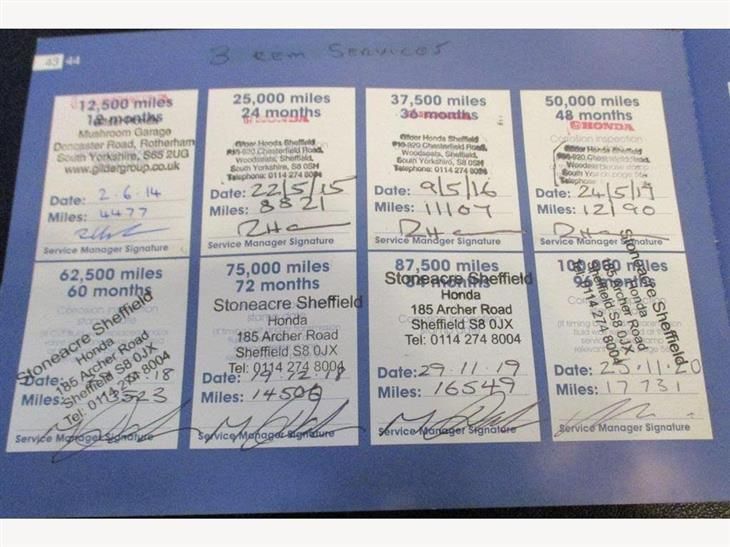 43 44
3 rem SERVICES
12,500 miles
18 months
Mushroom Garage
Doncaster Road, Rotherham
South Yorkshire, S65 2UG
www.gildergroup.co.uk
Date: 2.6.14
Miles: 4477
Service Manager Signature
25,000 miles
24 months
Gilder Honda Sheffield
Chesterfield Road,
Woodseats, Sheffield,
South Yorkshire, S8 0SH
Telephone: 0114 274
Date: 22/5/15
Miles: 8821
Service Manager Signature
37,500 miles
36 months
Gilder Honda Sheffield
Chesterfield Road,
Woodseats, Sheffield,
South Yorkshire, S8 0SH
Telephone: 0114 274
Date: 9/5/16
Miles: 11107
Service Manager Signature
50,000 miles
48 months
HONDA
Gilder Honda Sheffield
Date: 24/5/17
Miles: 12190
Service Manager Signature
62,500 miles
60 months
Stoneacre Sheffield
Honda
185 Archer Road
Sheffield S8 0JX
Tel: 0114 274 8004
Date: 18
Miles: 3523
Service Manager Signature
75,000 miles
72 months
Stoneacre Sheffield
Honda
185 Archer Road
Sheffield S8 0JX
Tel: 0114 274 8004
Date: 12.18
Miles: 14506
Service Manager Signature
87,500 miles
Stoneacre Sheffield
Honda
185 Archer Road
Sheffield S8 0JX
Tel: 0114 274 8004
Date: 29.11.19
Miles: 16549
Service Manager Signature
miles
months
Stoneacre Sheffield
Honda
185 Archer Road
Sheffield S8 0JX
Tel: 0114 274 8004
Date: 25.11.20
Miles: 17731
Service Manager Signature